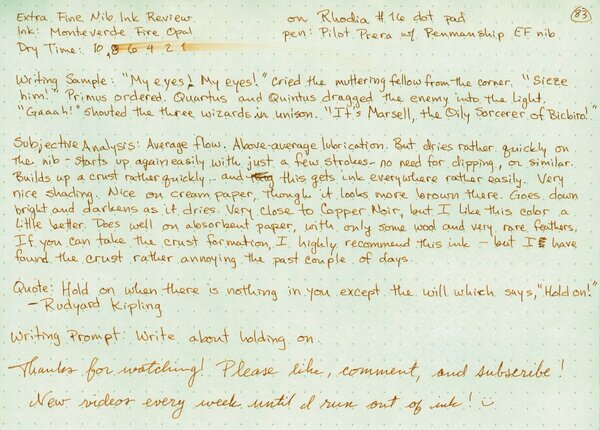 Extra Fine Nib Ink Review on Rhodia #16 dot pad 83
Ink: Monteverde Fire Opal pen: Pilot Prera w/ Penmanship EF nib
Dry Time: 10 8 6 4 2 1
Writing Sample: "My eyes! My eyes!" cried the muttering fellow from the corner. "Sieze
him!" Primus ordered. Quartus and Quintus dragged the enemy into the light.
"Gaaah!" shouted the three wizards in unison. "It's Marsell, the Oily Sorcerer of Bicbiro!"
Subjective Analysis: Average flow. Above-average lubrication. But dries rather quickly on
the nib - starts up again easily with just a few strokes - no need for dipping, or similar.
Builds up a crust rather quickly... and this gets ink everywhere rather easily. Very
nice shading. Nice on cream paper, though it looks more brown there. Goes down
bright and darkens as it dries. Very close to Copper Noir, but I like this color a
little better. Does well on absorbent paper, with only some wool and very rare feathers.
If you can take the crust formation, I highly recommend this ink - but I have
found the crust rather annoying the past couple of days.
Quote: Hold on when there is nothing in you except the will which says, "Hold on!"
- Rudyard Kipling
Writing Prompt: Write about holding on.
Thanks for watching! Please like, comment, and subscribe!
New videos every week until I run out of ink!